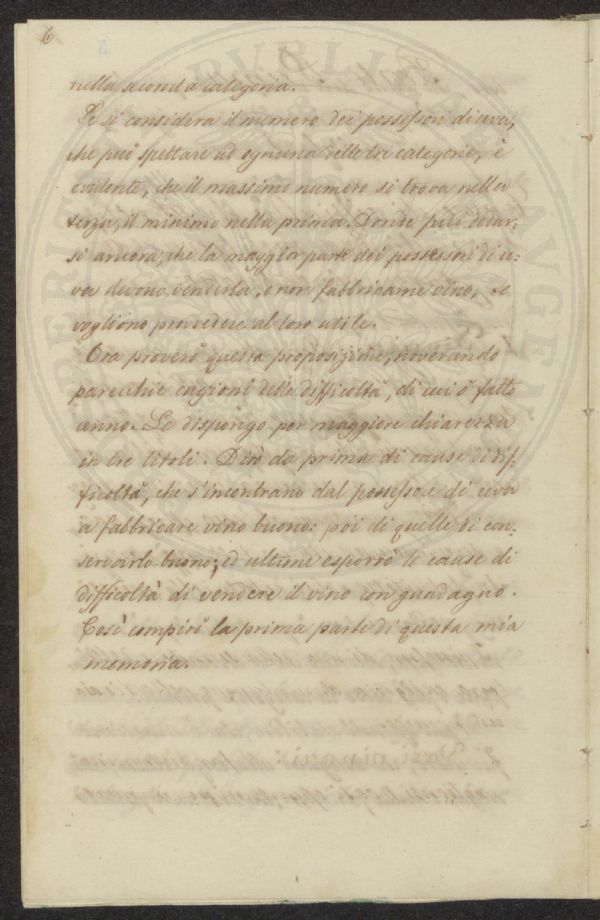 6
nella seconda categoria.
Se si considera il numero dei possessori di uva,
che può spettare ad ognuna delle tre categorie, è
evidente, che il massimo numero si trova nella
terza, il minimo nella prima. Donde può dedur-
si ancora, che la maggior parte dei possessori di u-
va devono venderla, e non fabbricarne vino, se
vogliono provvedere al loro utile.
Ora proverò questa proposizione, noverando
parecchie cagioni delle difficoltà, di cui ò fatto
cenno. Le dispongo per maggiore chiarezza
in tre titoli. Dirò da prima di cause di dif-
ficoltà, che s'incontrano dal possessore di uva
a fabbricare vino buono: poi di quelle di con-
servarlo buono; ed ultime esporrò le cause di
difficoltà di vendere il vino con guadagno.
Così compirò la prima parte di questa mia
memoria.